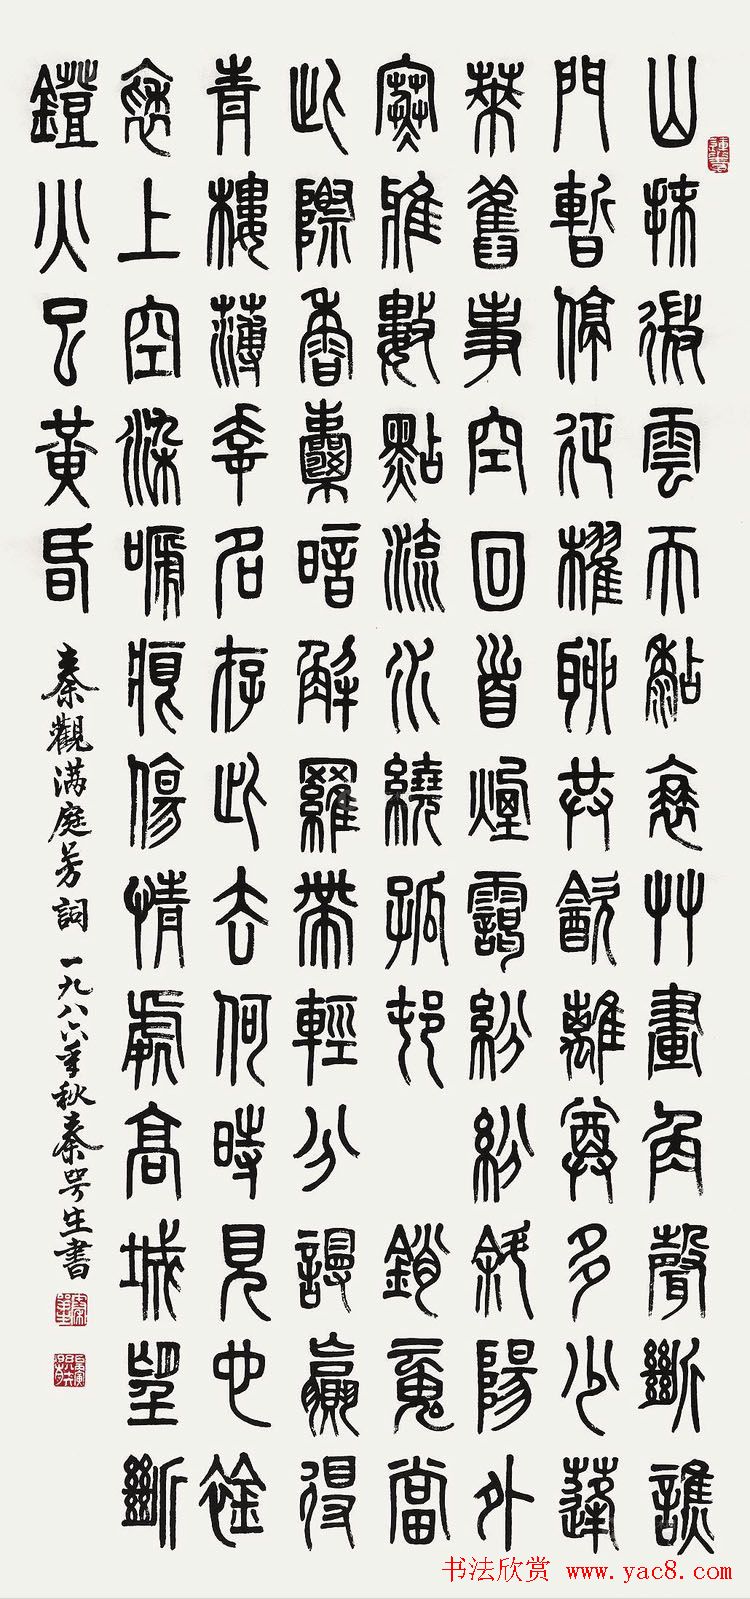 山抹微雲天黏衰艸畫角聲斷譙
門暫停征櫂聊共飲離尊多少蓬
萊舊事空回首煙靄紛紛斜陽外
寒雅數點流水繞孤邨 銷魂當
此際香囊暗解羅帶輕分謾贏得
青樓薄幸名存此去何時見也襟
褎上空染嗁痕傷情處高城望斷
鐙火已黃昏
秦觀滿庭芳詞 一九八六年秋秦咢生書
书法欣赏 www.yac8.com